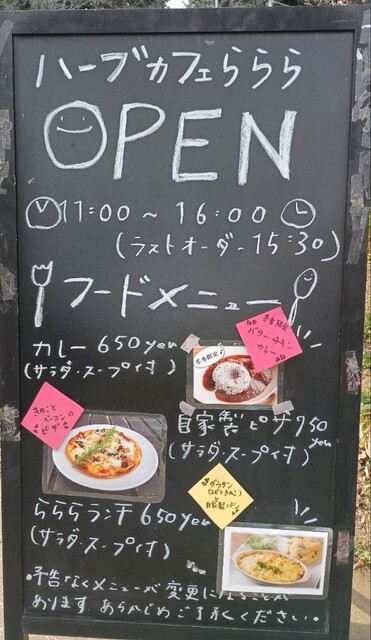 ハーブカフェららら
OPEN
11:00～16:00
(ラストオーダー15:30)
フードメニュー
冬季限定
バターチキン
カレー
カレー 650yen
(サラダ・スープ付)
冬季限定♪
きのこと
ベーコンの
ピザ
自家製ピザ750
yen
(サラダ・スープ付)
グラタン
(えびときのこ)
と
自家製パン
らららランチ 650yen
(サラダ・スープ付)
・予告なくメニューが変更になることが
あります。あらかじめご了承ください。